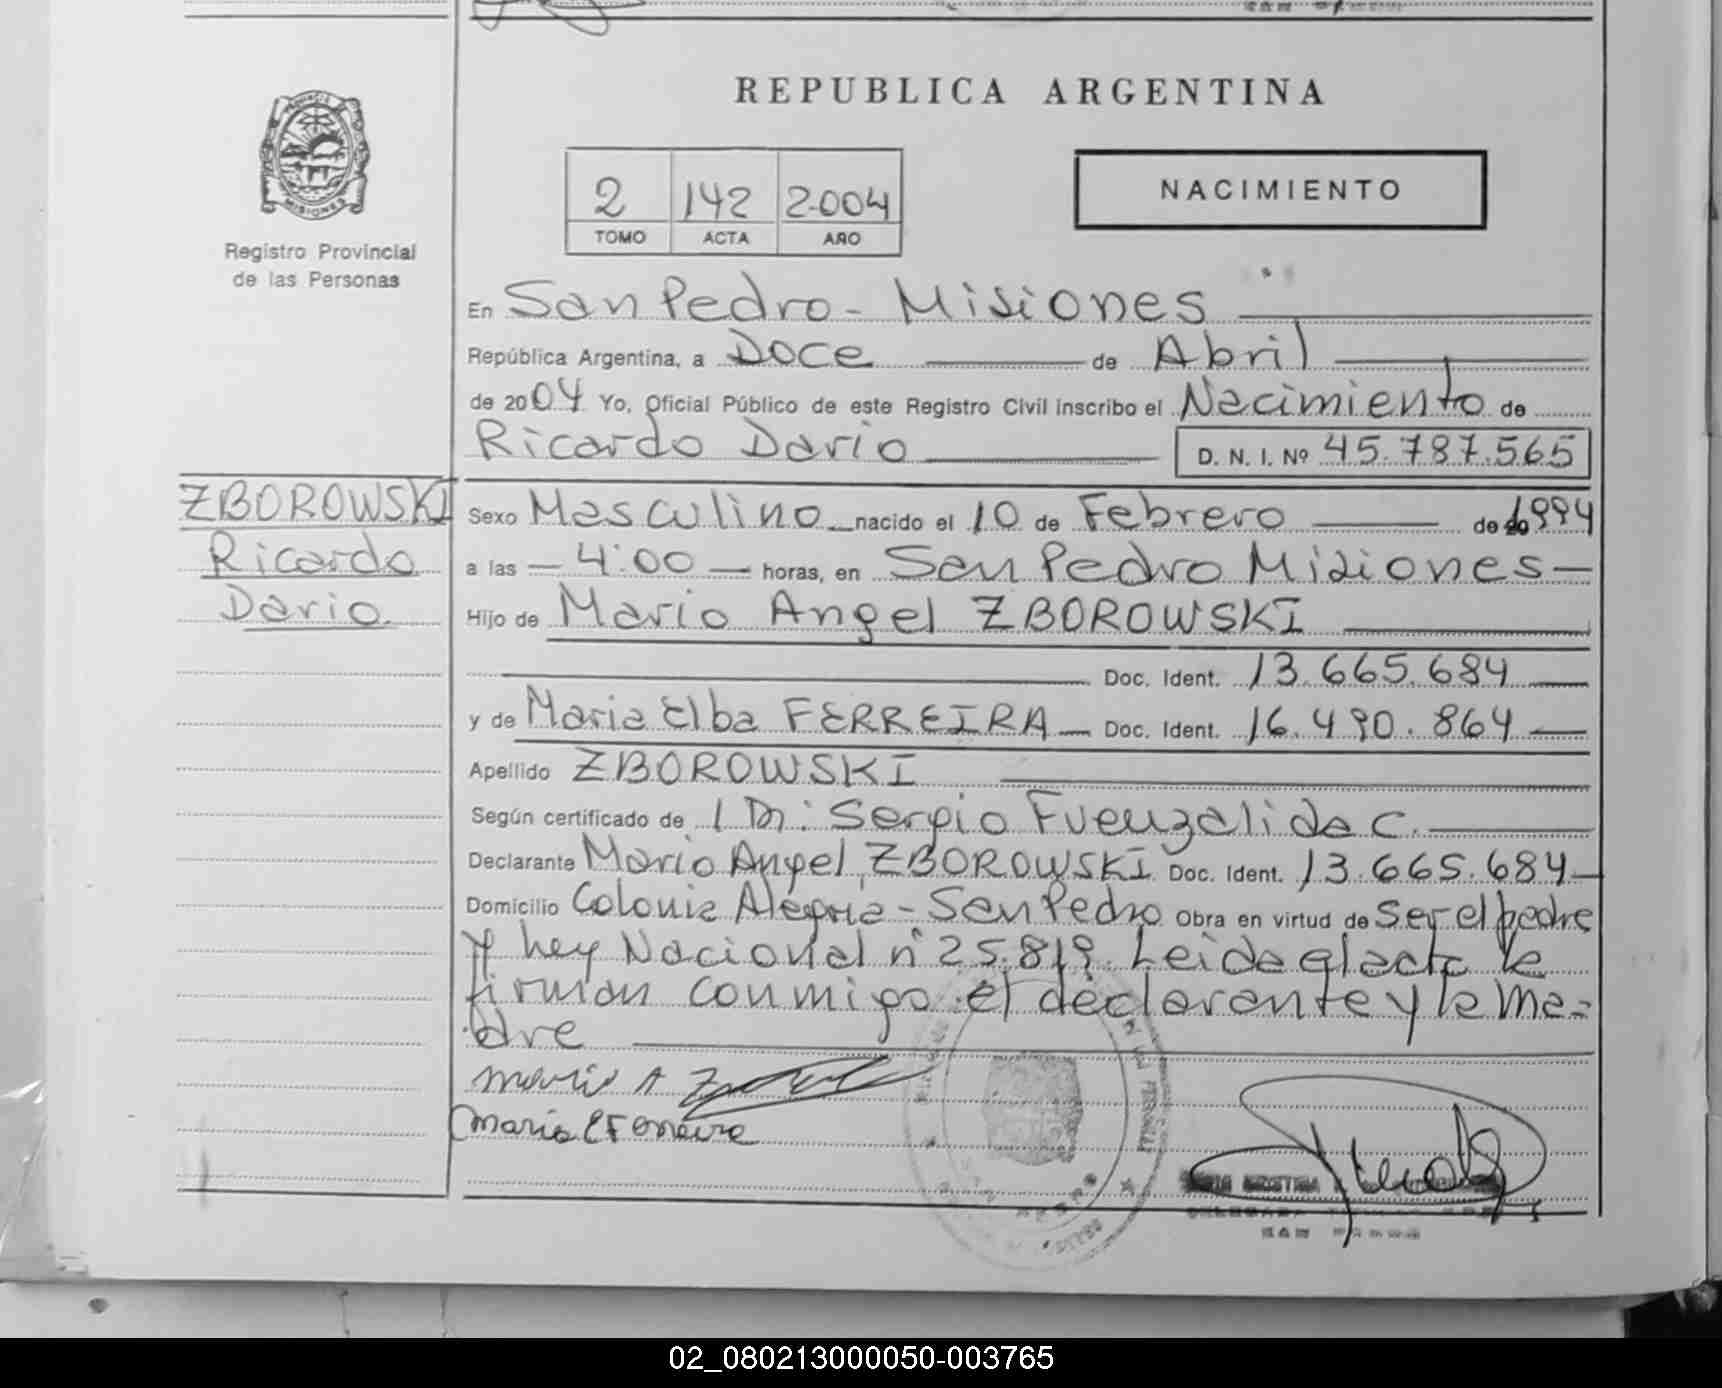 REPUBLICA ARGENTINA
2 142 2004
TOMO ACTA AÑO
NACIMIENTO
MISIONES
Registro Provincial
de las Personas
En San Pedro - Misiones
República Argentina, a Doce de Abril
de 2004 Yo, Oficial Público de este Registro Civil inscribo el Nacimiento de
Ricardo Dario D. N. I. Nº 45.787.565
ZBOROWSKI
Ricardo
Dario
Sexo Masculino nacido el 10 de Febrero de 1994
a las - 4:00 - horas, en San Pedro Misiones -
Hijo de Mario Angel ZBOROWSKI
Doc. Ident. 13.665.684
y de Maria Elba FERREIRA Doc. Ident. 16.490.864
Apellido ZBOROWSKI
Según certificado de Dr: Sergio Fuenzalida C.
Declarante Mario Angel ZBOROWSKI Doc. Ident. 13.665.684
Domicilio Colonia Alegria - San Pedro Obra en virtud de Ser el padre
y Ley Nacional nº 25.819. Leida el acta la
firman conmigo el declarante y la ma=
dre
Mario A Z
Maria E Ferreira
SAN PEDRO
02_080213000050-003765